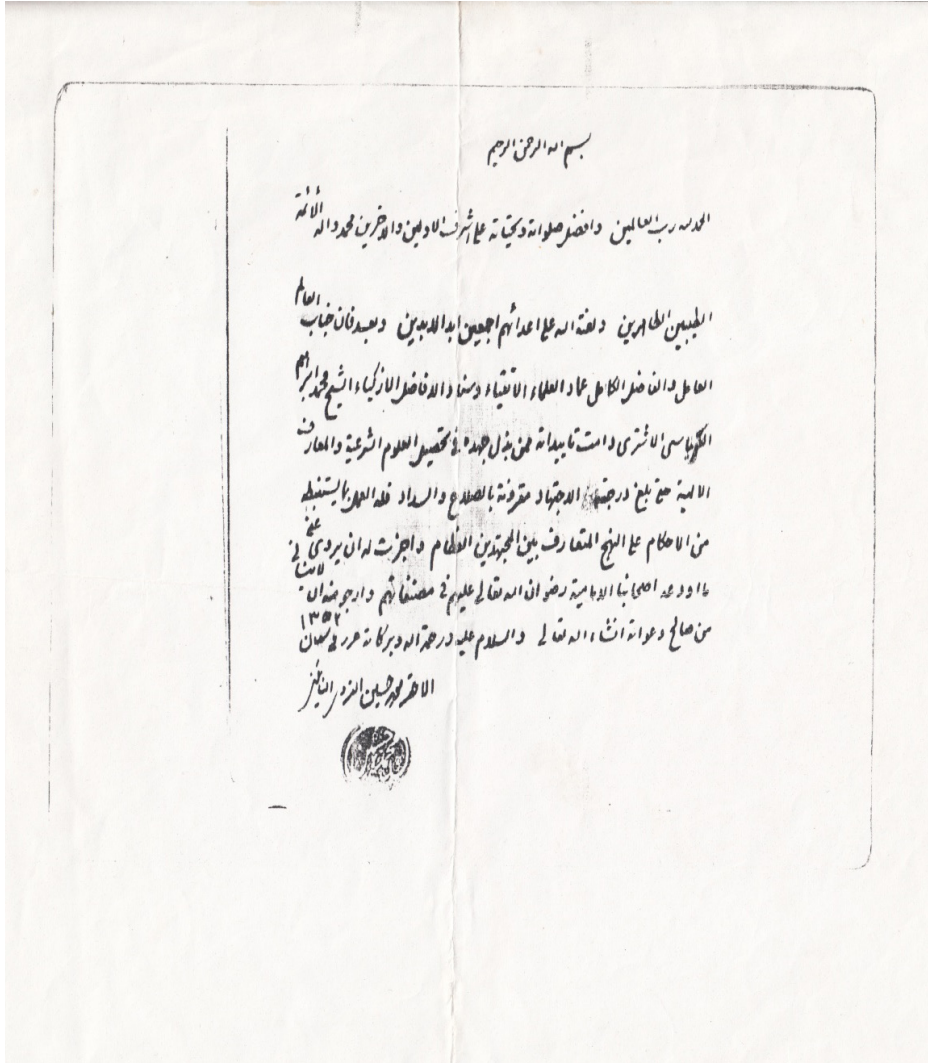 بسم الله الرحمن الرحيم
الحمد لله رب العالمين وافضل صلواته وتحياته على اشرف الاولين والاخرين محمد واله الأئمة
الطيبين الطاهرين ولعنة الله على اعدائهم اجمعين ابد الابدين وبعد فان جناب العالم
العامل والفاضل الكامل عماد العلماء الاتقياء وسناد الافاضل الازكياء الشيخ محمد ابراهيم
الكرباسى الاشترى دامت تاييداته ممن بذل جهده في تحصيل العلوم الشرعية والمعارف
الالهية حتى بلغ درجة الاجتهاد مقرونة بالصلاح والسداد فله العمل بما يستنبطه
من الاحكام على النهج المتعارف بين المجتهدين العظام واجزت له ان يروى عنى
ما اودعه اصحابنا الامامية رضوان الله تعالى عليهم في مصنفاتهم وارجو منه ان لاينسانى
من صالح دعواته انشاء الله تعالى والسلام عليه ورحمة الله وبركاته حرر فى شعبان ١٣٥٢
الاحقر محمد حسين الغروى النائينى